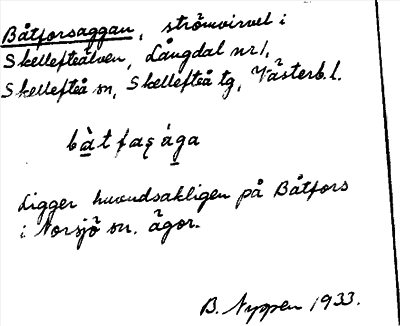 Båtforsaggan, strömvirvel i
Skellefteälven, Långdal nr 1,
Skellefteå sn, Skellefteå tg, Västerb. l.
bàt faʂ ága
Ligger huvudsakligen på Båtfors
i Norsjö sn. ägor.
B. Nyppen 1933.